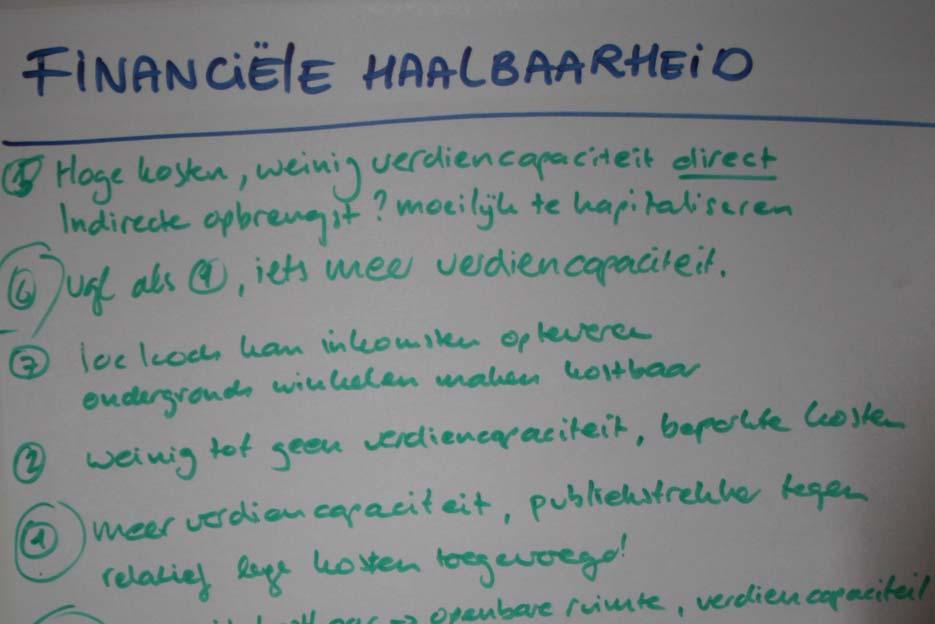 FINANCIËLE HAALBAARHEID
Hoge kosten, weinig verdiencapaciteit direct
Indirecte opbrengst? moeilijk te kapitaliseren
⑥ vgl als ④, iets meer verdiencapaciteit.
⑦ loc kan inkomsten opleveren
ondergronds winkelen maken kostbaar
② weinig tot geen verdiencapaciteit, beperkte kosten
① meer verdiencapaciteit, publiekstrekker tegen
relatief lage kosten toegevoegd!
→ openbare ruimte, verdiencapaciteit